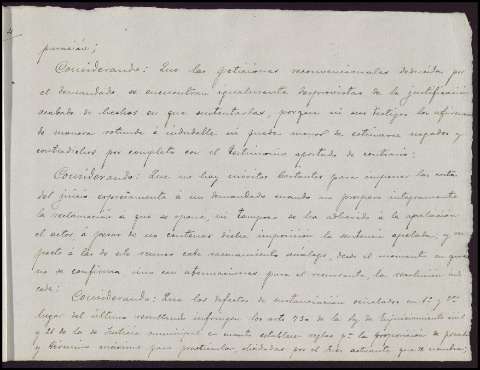 4
Considerando: Que las peticiones reconvencionales deducidas por
el demandado se encuentran igualmente desprovistas de la justificación
acabada de hechos en que sustentarlas, porque ni sus testigos los afirman
de manera rotunda é indudable ni puede menos de estimarse negados y
contradichos por completo con el testimonio aportado de contrario.
Considerando: Que no hay méritos bastantes para imponer las costas
del juicio expresamente á un demandado cuando no prospera íntegramente
la reclamación a que se opone, ni tampoco se ha adherido á la apelación
el actor á pesar de no contener dicha imposición la sentencia apelada, y
á las de este recurso cabe razonamiento análogo, desde el momento en que
no se confirma sin para el recurrente, la resolución
Considerando: Que los defectos de sustanciación señalados en
lugar del último resultando infringen los arts de la ley de Enjuiciamiento civil
y 21 de la de Justicia municipal en cuanto establecen reglas pª la proposición de
y término máximo para practicarlas, por el